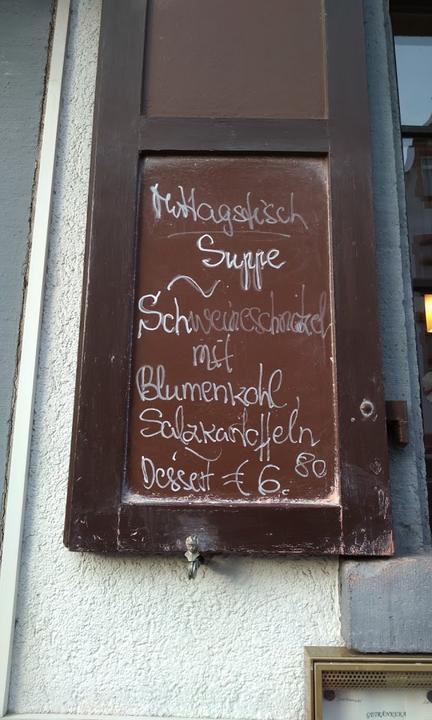 Mittagstisch
Suppe
~
Schweineschnitzel
mit
Blumenkohl,
Salzkartoffeln
Dessert € 6.80
GETRÄNKEKA